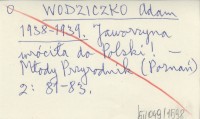 WODZICZKO Adam
1938-1939. Jaworzyna
wróciła do Polski! –
Młody Przyrodnik (Poznań)
2: 81-83.